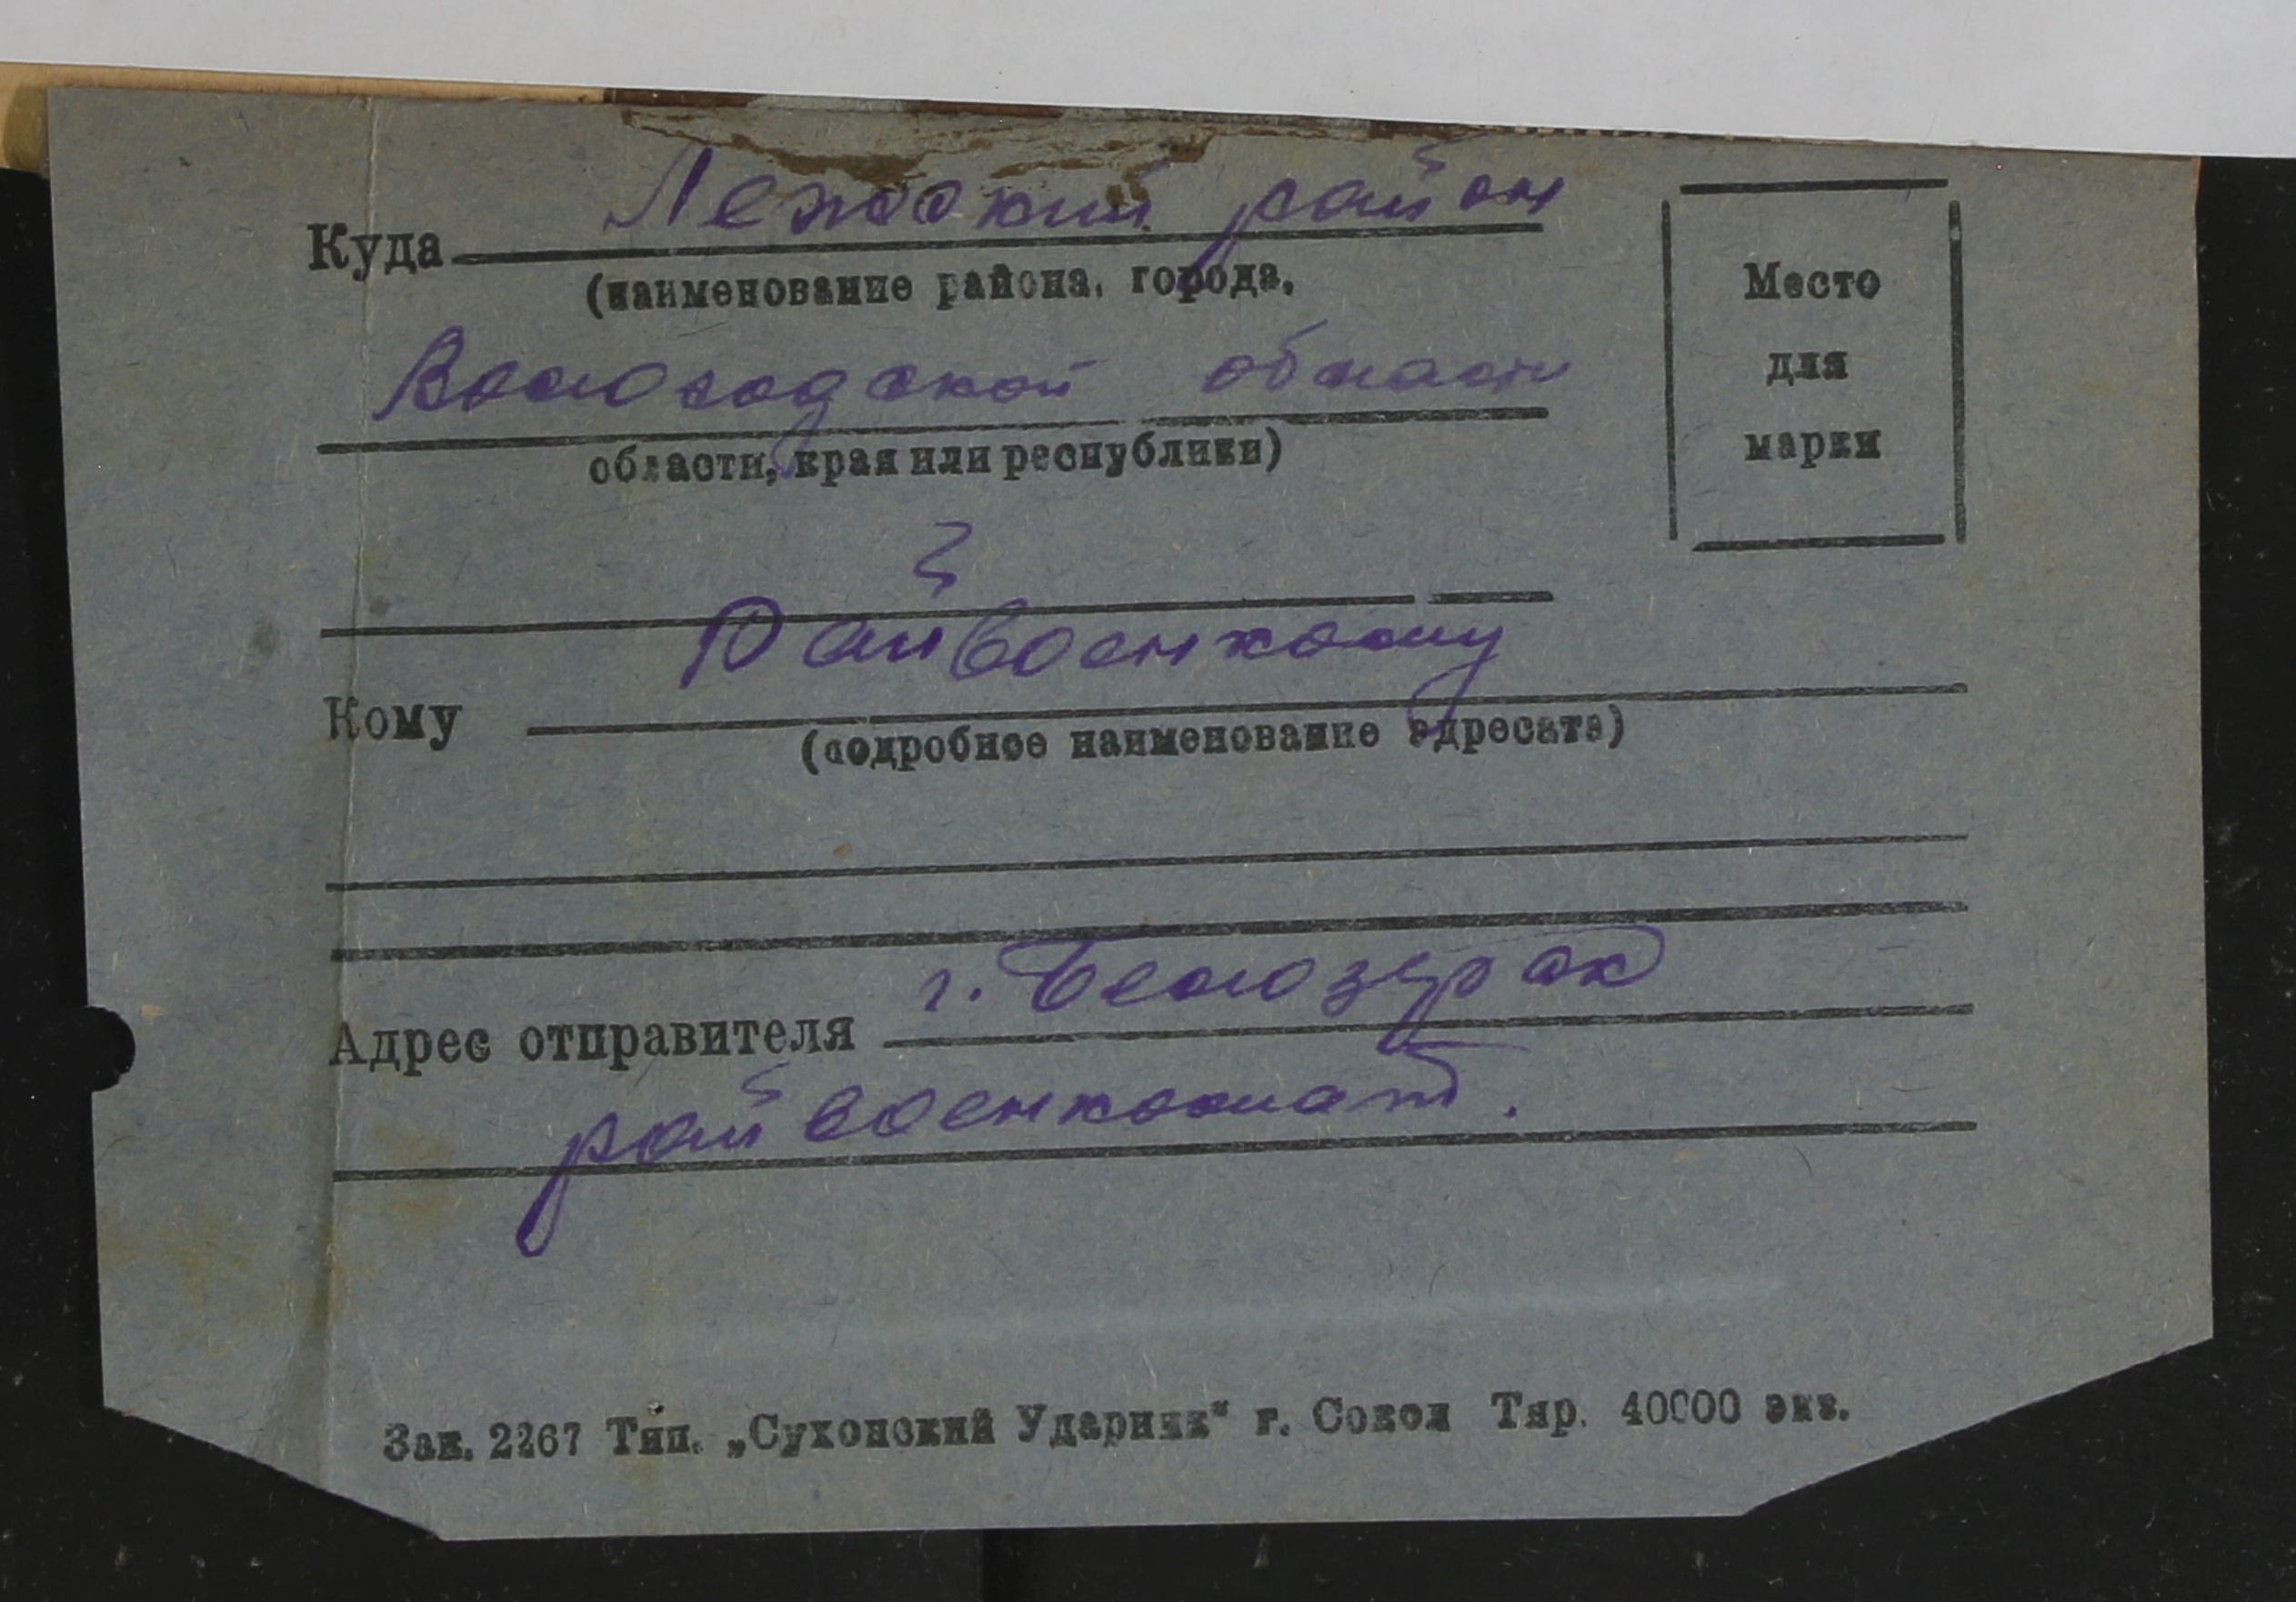 Лежский район
Куда
(наименование района, города,
Вологодской области
области, края или республики)
Место
для
марки
Райвоенкому
Кому
(подробное наименование адресата)
г. Белозерск
Адрес отправителя
райвоенкомат.
Зак. 2267 Тип. „Сухонский Ударник“ г. Сокол Тир. 40000 экз.